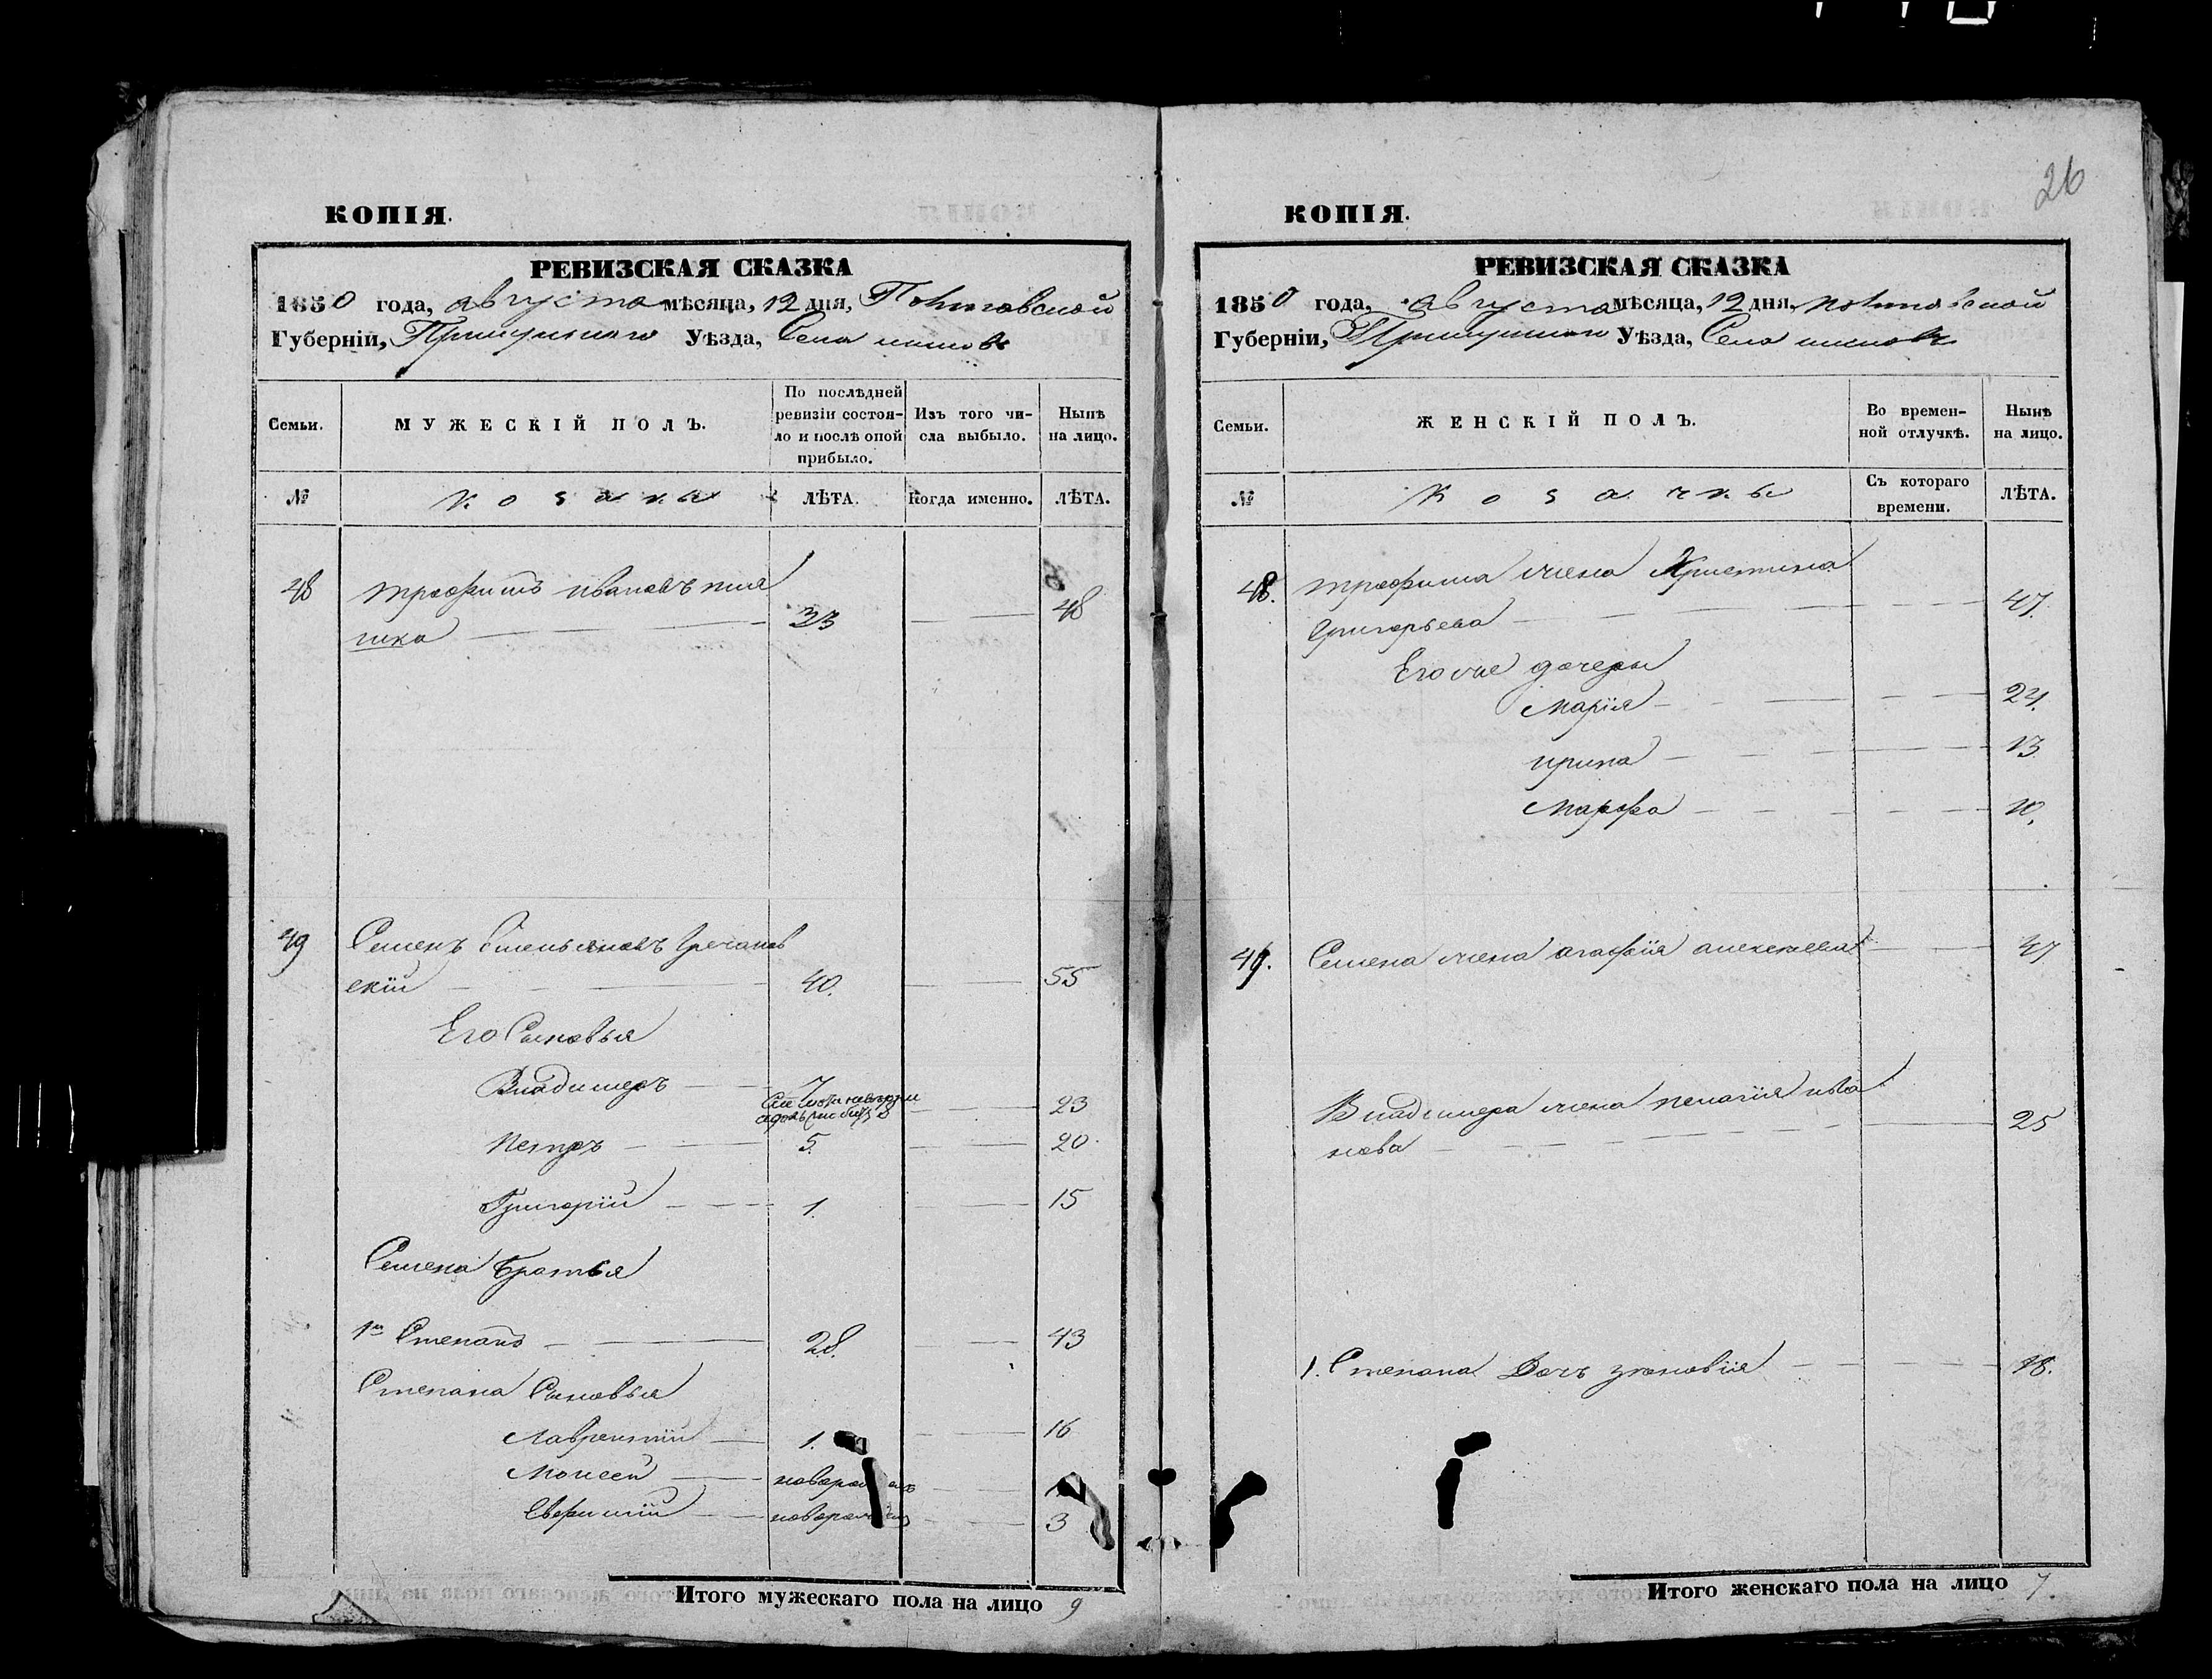 26
КОПІЯ.
РЕВИЗСКАЯ СКАЗКА
1850 года, августа мѣсяца, 12 дня, Полтавской
Губерніи, Прилуцкаго Уѣзда, Села
Семьи.
МУЖЕСКІЙ ПОЛЪ.
По послѣдней
ревизіи состоя-
ло и послѣ оной
прибыло.
Изъ того чи-
сла выбыло.
Нынѣ
на лицо.
№
Козаки
ЛѢТА.
Когда именно.
ЛѢТА.
48 Трофимъ Ивановъ
23 48
49 Семенъ Емельяновъ Гречанов
скій 40. 55
Его Сыновья
Владимеръ 7 23
Петръ 5. 20.
Григорій 1. 15
Семена Братья
1й Степанъ 28. 43
Степана Сыновья
Лаврентій 1. 16
Моисей
3
Итого мужескаго пола на лицо 9
КОПІЯ.
РЕВИЗСКАЯ СКАЗКА
1850 года, августа мѣсяца, 12 дня, Полтавской
Губерніи, Прилуцкаго Уѣзда, Села
Семьи.
ЖЕНСКІЙ ПОЛЪ.
Во времен-
ной отлучкѣ.
Нынѣ
на лицо.
№
Козачки
Съ котораго
времени.
ЛѢТА.
48. Трофима жена Христина
Григорьева 47.
Его же дочери
Марія 24.
Ирина 13
Марфа 10.
49. Семена жена Агафія Алексеева 47
Владимера жена Пелагія Ива
нова 25
1. Степана Дочь Зеновія 18.
Итого женскаго пола на лицо 7.